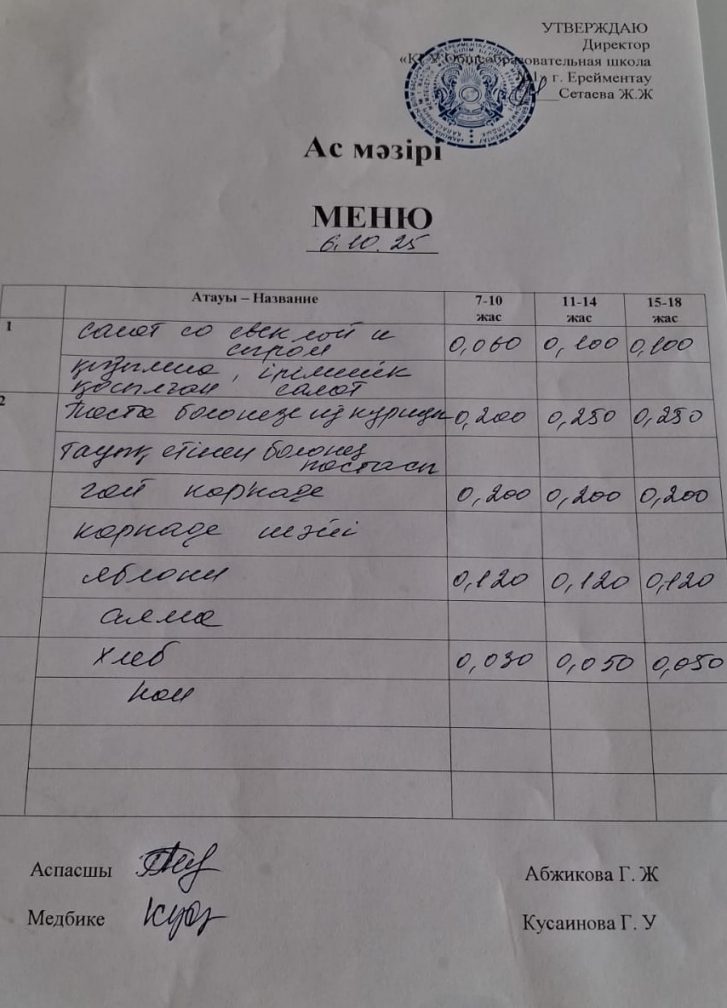 УТВЕРЖДАЮ
Директор
«КГУ Общеобразовательная школа
№1» г. Ерейментау
Сетаева Ж.Ж
Ас мәзірі
МЕНЮ
6.10.25
Атауы – Название 7-10 жас 11-14 жас 15-18 жас
1 салат со свеклой и сыром 0,060 0,100 0,100
қызылша, ірімшік қосылған салат
2 паста болонезе из курицы 0,200 0,250 0,250
тауық етінен болонез пастасы
чай каркаде 0,200 0,200 0,200
каркаде шәйі
яблоки 0,120 0,120 0,120
алма
хлеб 0,030 0,050 0,050
нан
Аспасшы Абжикова Г. Ж
Медбике Кусаинова Г. У